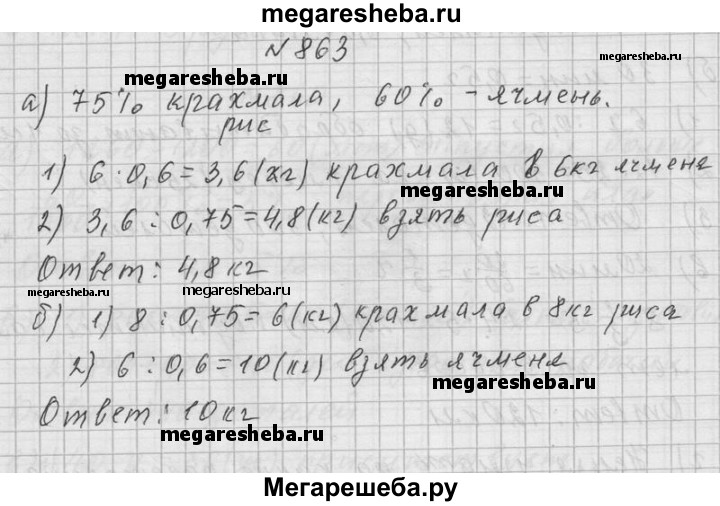 megaresheba.ru
№ 863
megaresheba.ru
megaresheba.ru
а) 75% крахмала, 60% - ячмень.
рис
1) 6 · 0,6 = 3,6 (кг) крахмала в 6кг ячменя
megaresheba.ru
2) 3,6 : 0,75 = 4,8 (кг) взять риса
Ответ: 4,8 кг
megaresheba.ru
megaresheba.ru
б) 1) 8 : 0,75 = 6 (кг) крахмала в 8кг риса
2) 6 : 0,6 = 10 (кг) взять ячменя
megaresheba.ru
Ответ: 10 кг
megaresheba.ru
Мегарешеба.ру